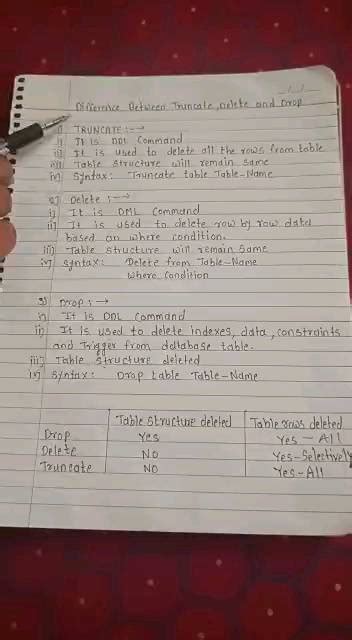 Difference Between Truncate, Delete and Drop
1) TRUNCATE :- →
i) It is DDL Command
ii) It is used to delete all the rows from table
iii) Table Structure will remain same
iv) Syntax: Truncate table Table-Name
2) Delete :- →
i) It is DML Command
ii) It is used to delete row by row data
based on where condition.
iii) Table structure will remain same
iv) Syntax: Delete from Table-Name
Where Condition
3) Drop :- →
i) It is DDL Command
ii) It is used to delete indexes, data, constraints
and Trigger from database table.
iii) Table Structure deleted
iv) Syntax: Drop table Table-Name
Table structure deleted Table rows deleted
Drop Yes Yes - All
Delete No Yes-Selectively
Truncate No Yes-All